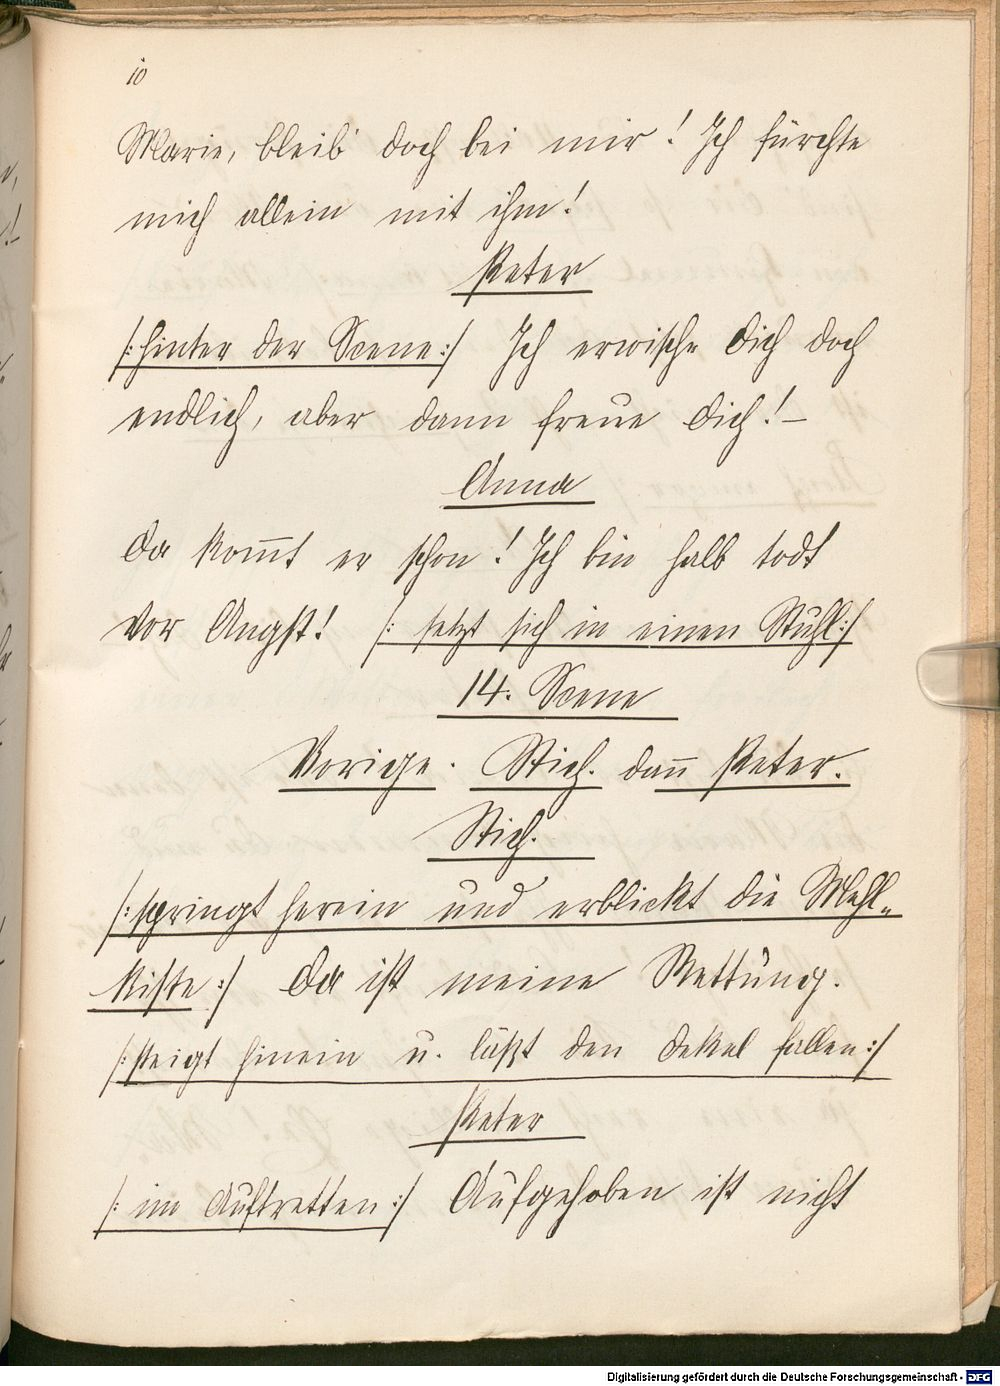 10
Marie, bleib' doch bei mir! Ich fürchte
mich allein mit ihm!
Peter
/: hinter der Scene :/ Ich erwische Dich doch
endlich, aber dann freue Dich! –
Anna
Da kom̅t er schon! Ich bin halb todt
vor Angst! /: setzt sich in einen Stuhl :/
14. Scene
Vorige. Stich. dan̅ Peter.
Stich.
/: springt herein und erblickt die Mehl„
kiste :/ Da ist meine Rettung.
/: steigt hinein u. läßt den Dekel fallen :/
Peter
/: im Auftretten :/ Aufgehoben ist nicht
Digitalisierung gefördert durch die Deutsche Forschungsgemeinschaft - DFG